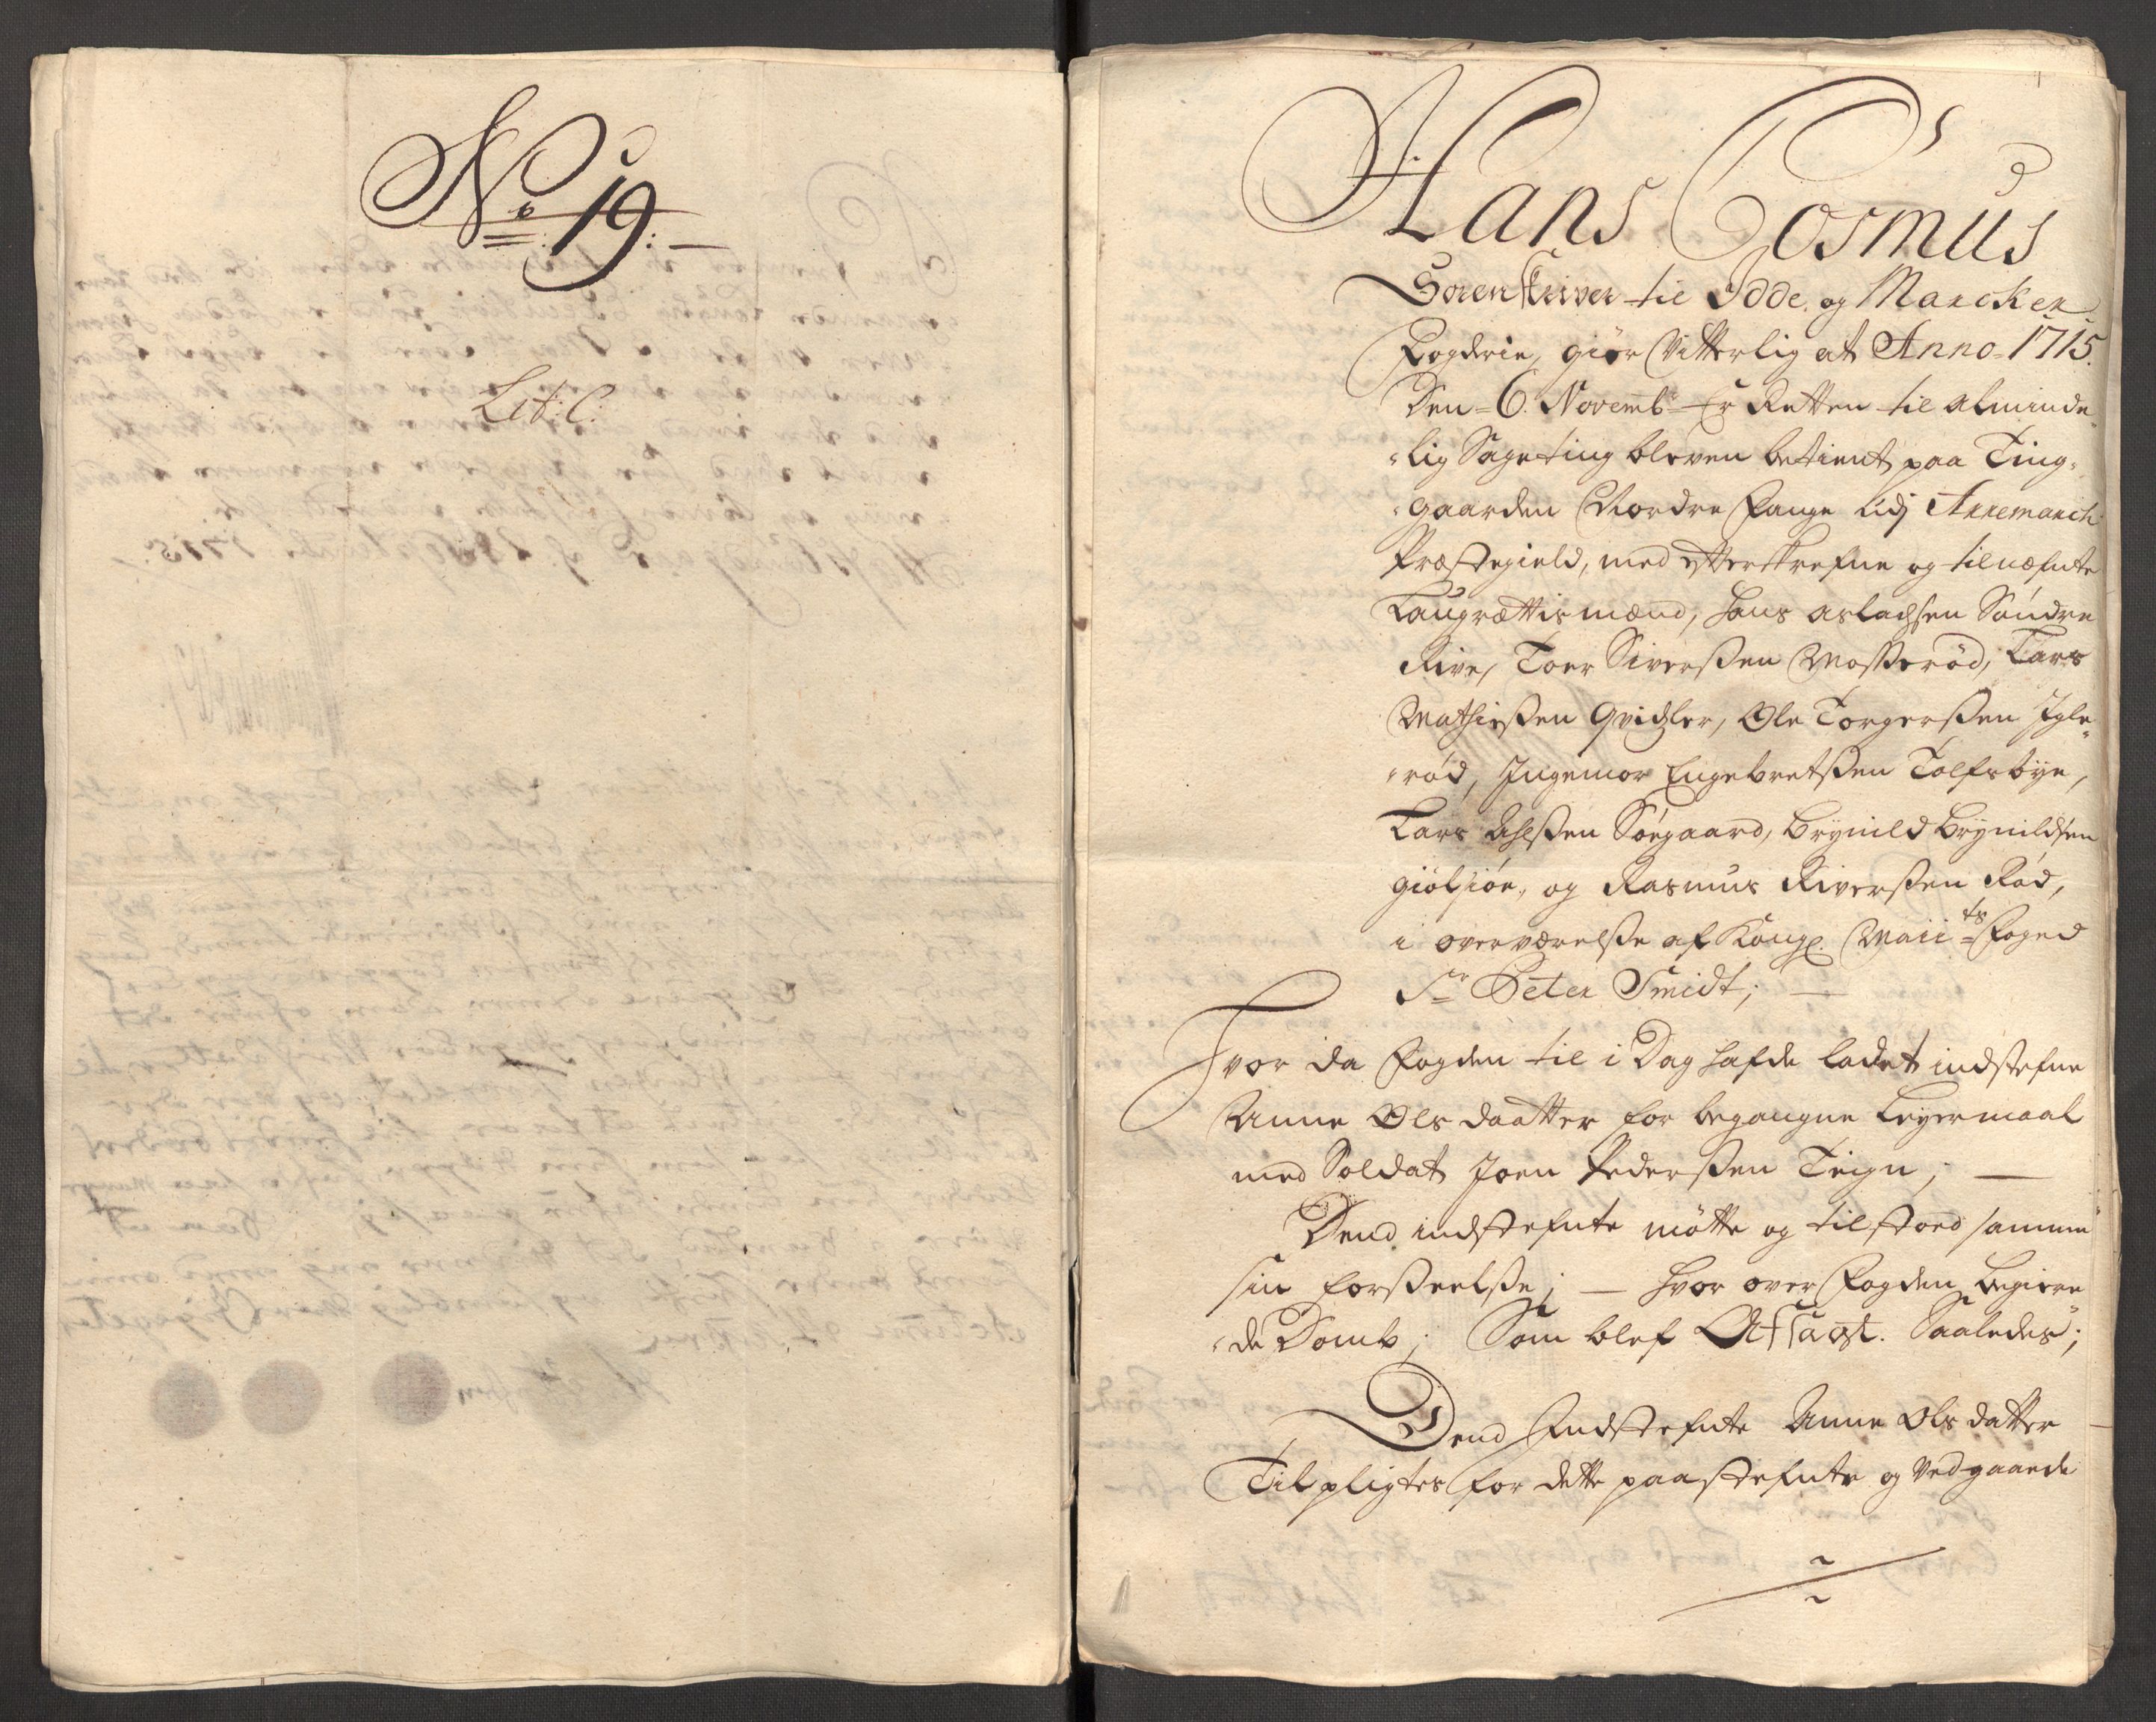 No 19.
Lit: C:
Hans Cosmus
Sorenskriver til Idde og Marcker
Fogderie, giør Vitterlig at Anno 1715.
Den 6. Novembr Er Retten til alminde„
„lig Sageting bleven betient paa Ting„
„gaarden Nordre Fange udj Arremarch
Præstegield, med efterskrefne og tilnæfnte
Laugrættis mænd, Hans Aslachsen Søndre
Rive, Toer Siverssen Mosserød, Lars
Mathissen Qvidzler, Ole Torgerssen Igle„
„rød, Ingemor Engebretssen Tolfsbye,
Lars Ashlssen Sørgaard, Brynild Brynildsen
giølsiøe, og Rasmus Siverssen Rød,
i overværelsse af Kongl. Maii ts Foged
Sr Peter Smidt;
Hvor da Fogden til i Dag hafde ladet indstefne
Anne Ols daatter for begangne Leyermaal
med Soldat Joen Pederssen Teign;
Dend indstefnte møtte og tilstoed samme
sin forseelsse; — hvor over Fogden begiere„
„de Domb; Som blef Afsagt. Saaledes;
Dend Indstefnte Anne Olsdatter
Tilpligtes for dette paastefnte og Vedgaaede